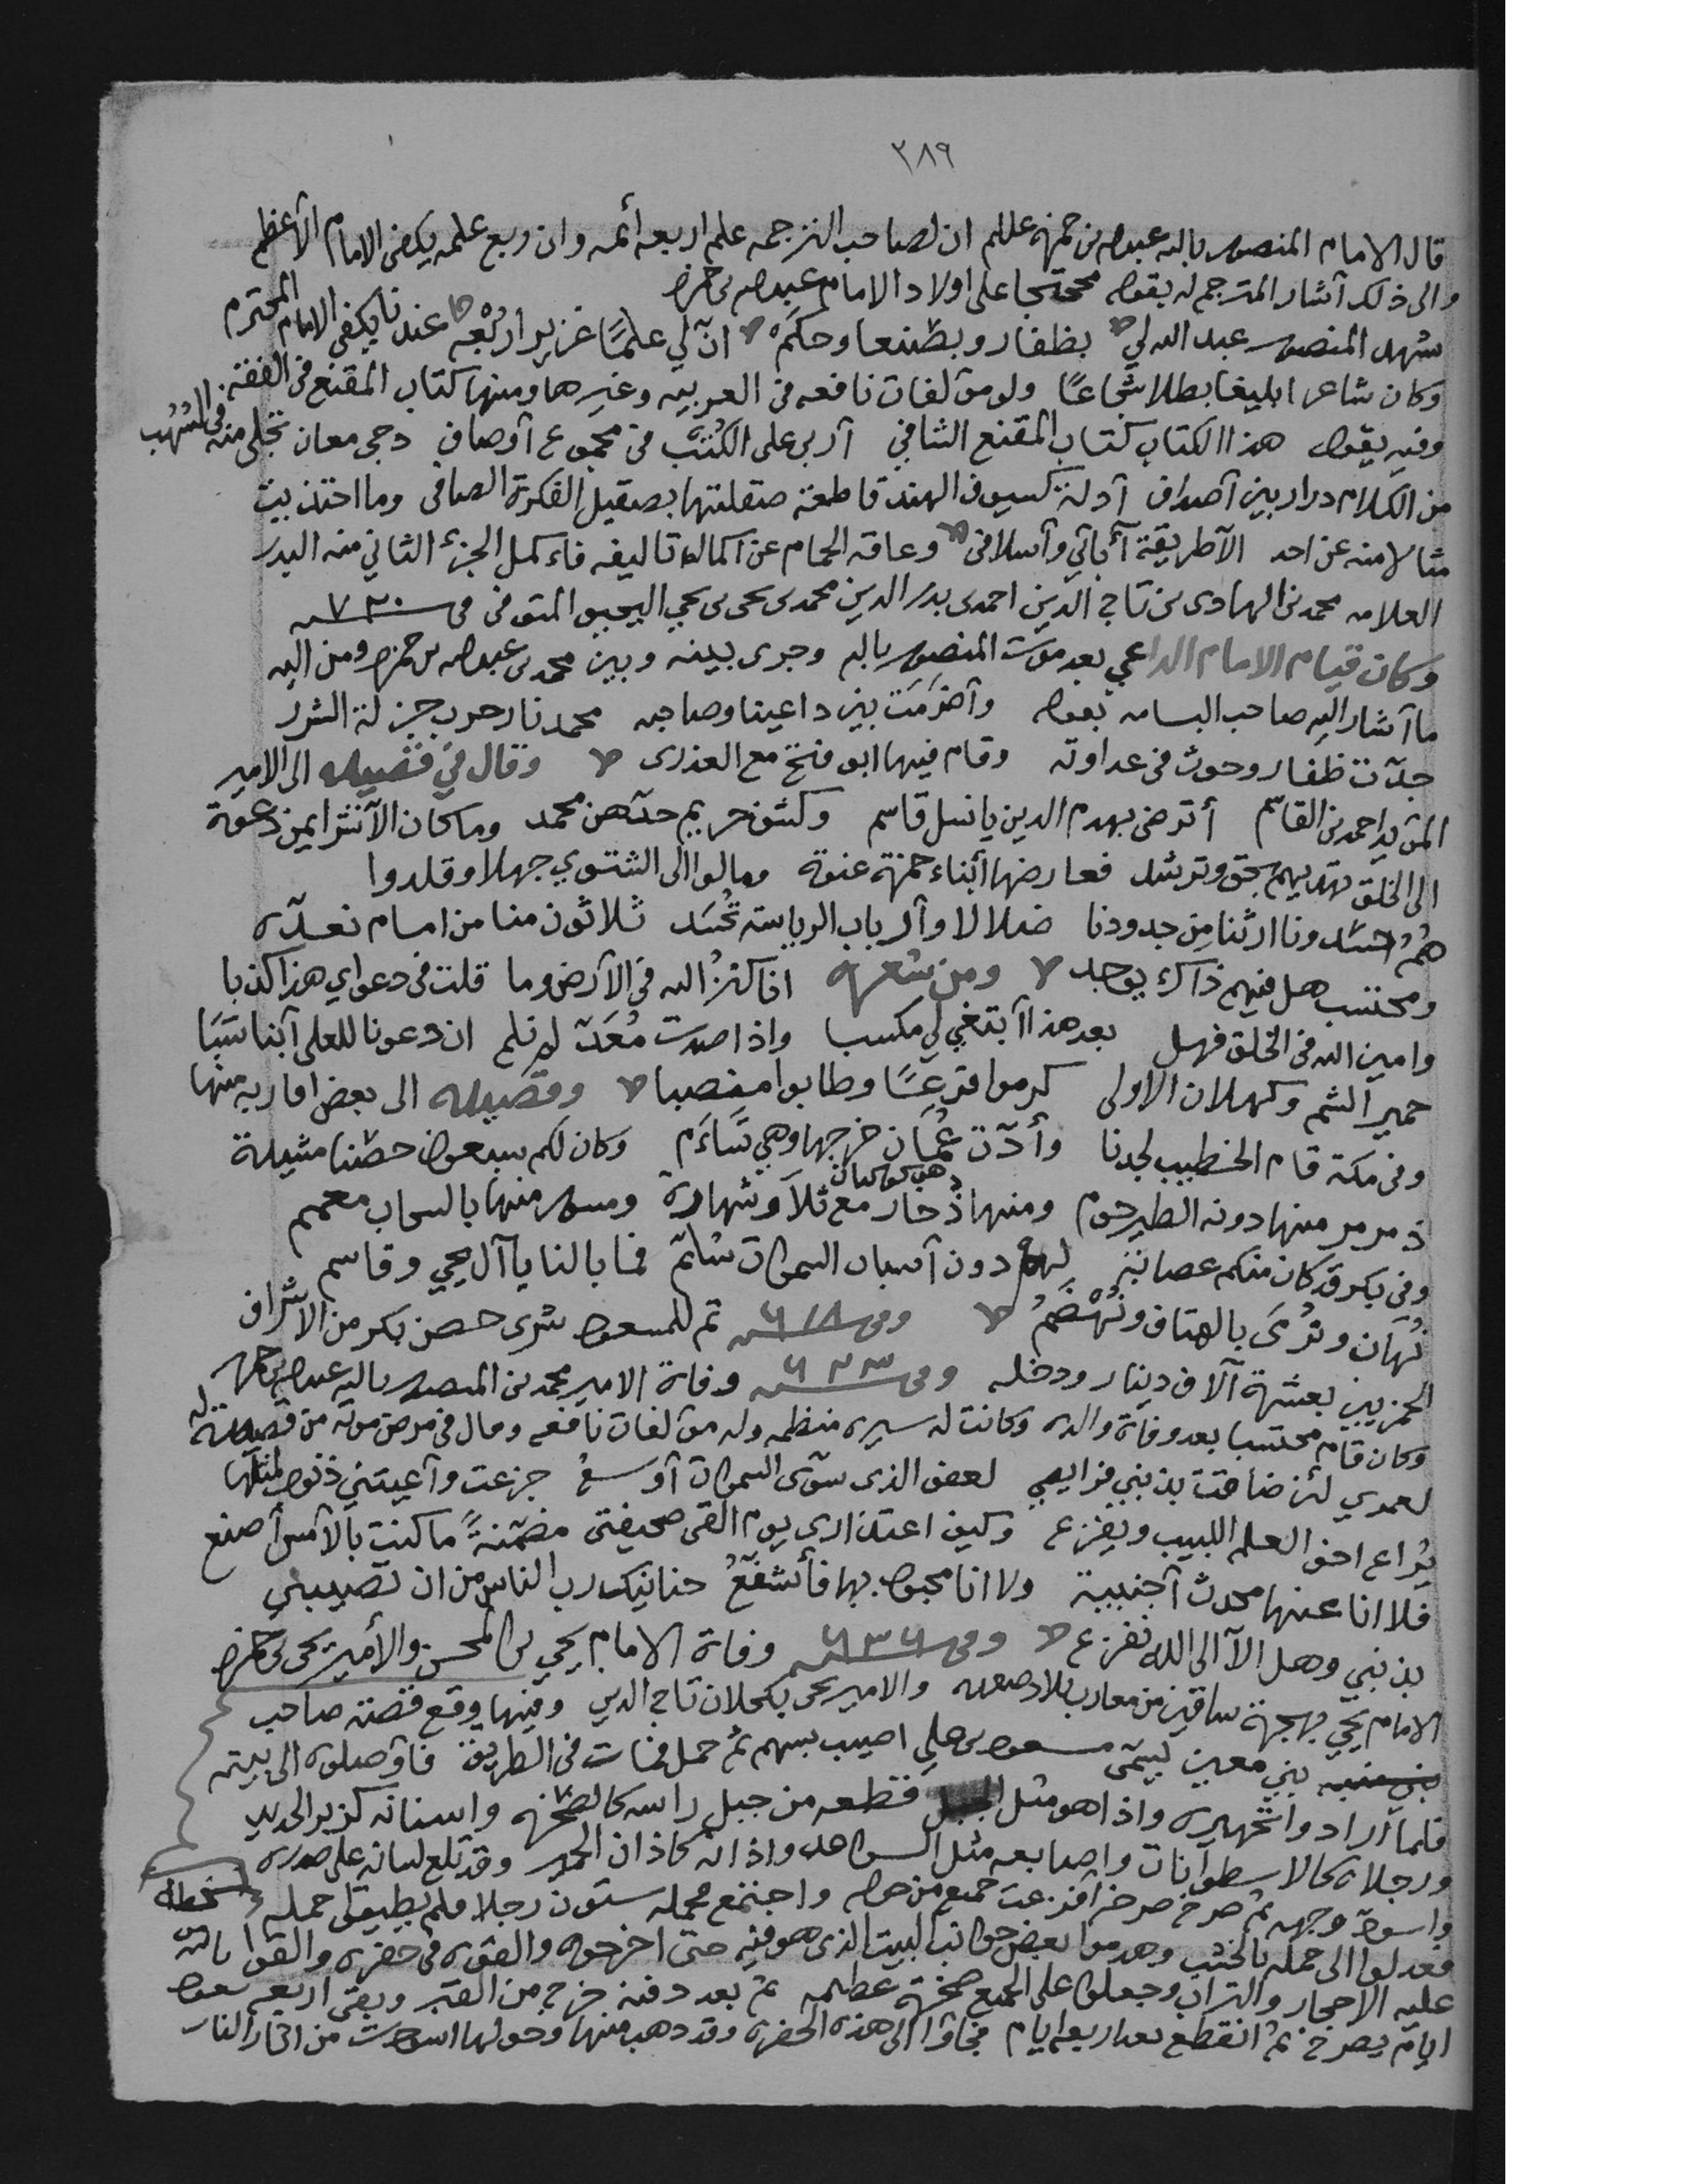 ٢٨٩
قال الامام المنصور بالله عبدالله بن حمزة عللم ان لصاحب الترجمه علم اربعه أئمه وان ربع علمه يكفي الامام الأعظم
والى ذلك أشار المترجم له بقوله محتجا على اولاد الامام عبدالله بن حمزه
شهد المنصور عبد الله لي بظفار وبصنعا وحكم ان لي علمًا غزيرا ربعه عندنا يكفي الامام المحترم
وكان شاعرا بليغا بطلا شجاعًا وله مؤلفات نافعه في العربيه وغيرها ومنها كتاب المقنع في الفقه
وفيه يقول هذا الكتاب كتاب المقنع الشافي أربى على الكتب في مجموع أوصاف دجى معان تجلى منه في الشهب
من الكلام درار بين أصداف أدلة كسيوف الهند قاطعة صقلتها بصقيل الفكرة الصافى وما احتذيت
مثالا منه عن احد الا طريقة آبائي وأسلافى وعاقه الحمام عن اكمال تاليفه فاكمل الجزء الثاني منه السيد
العلامه محمد بن الهادى بن تاج الدين احمد بن بدر الدين محمد بن يحى بن يحيى اليحيوي المتوفى فى ٧٢٠ سنه
وكان قيام الامام الداعي بعد موت المنصور بالله وجرى بينه وبين محمد بن عبدالله بن حمزه ومن اليه
ما أشار اليه صاحب البسامه بقوله وأضرمت بين داعينا وصاحبه محمد نار حرب جزلة الشرر
جدّت ظفار وحوث في عداوته وقام فيها ابو فتح مع العذرى وقال في قصيده الى الامير
المؤيد احمد بن القاسم أترضى بهدم الدين يا نسل قاسم وكشف حريم حدهن محمد وما كان الا نشر ايمن دعوة
الى الخلق تهديهم بحق وترشد فعارضها أبناء حمزة عنوة ومالوا الى الشتوي جهلا وقلدوا
هم حسدونا ارثنا من جدودنا ضلالا وأرباب الرياسة تحسد ثلاثون منا من امام نعدّه
ومحتسب هل فيهم ذاك يوجد ومن شعره انا كنز الله في الأرض وما قلت في دعواي هذا كذبا
وامين الله فى الخلق فهل بعد هذا أبتغي لي مكسبا واذا صرت معدّ لم تلم ان دعونا للعلى أبنا سبا
حمير الشم وكهلان الاولى كرموا فرعًا وطابوا منصبا وقصيده الى بعض اقاربه منها
وفى مكة قام الخطيب لجدنا وأدّت عُمان خرجها وهي تسأم وكان لكم سبعون حصنا مشيدة
ذمرمر منها دونه الطير حوم ومنها ذخار مع ثلا وشهارة ومسور منها بالسحاب معمم
هو كوكبان
وفي بكر قد كان منكم عصابة لهم دون أسباب السموات سلم فما بالنا يا آل يحيى وقاسم
نُهان ونُرمى بالهتاف ونُهضم وفى ٦١٨ سنه تم للمسعود شرى حصن بكر من الاشراف
الحمزيين بعشرة آلاف دينار ودخله وفى ٦٢٣ سنه وفاة الامير محمد بن المنصور بالله عبدالله بن حمزه
وكان قام محتسبا بعد وفاة والده وكانت له سيره منظمه وله مؤلفات نافعه وقال فى مرض موته من قصيدة له
لعمري لئن ضاقت بذنبي فرايصي لعفو الذى سوّى السموات أوسع جزعت وأعيتني ذنوب لمثلها
يُراع اخو العلم اللبيب ويفزع وكيف اعتذارى يوم القى صحيفتى مضمّنةً ما كنت بالأمس أصنع
فلا انا عنها محدث أجنبية ولا انا مجبور بها فأشفّعُ حنانيك رب الناس من ان تصيبني
بذنبي وهل الا الى الله نفزع وفى ٦٣٦ سنه وفاة الامام يحيى بن المحسن والأمير يحى بن حمزه
الامام يحيى بهجرة ساقين من مغارب بلاد صعده والامير يحى بكحلان تاج الدين وفيها وقع قصة صاحب
بني معين يسمّى مسعود بن علي اصيب بسهم ثم حمل فمات فى الطريق فأوصلوه الى بيته
فلما أرادوا تجهيزه واذا هو مثل الجبل قطعه من جبل راسه كالصخره واسنانه كزبر الحديد
ورجلاه كالاسطوانات واصابعه مثل السواعد واذانه كاذان الحمير وقد تلع لسانه على صدره
واسودّ وجهه ثم صرخ صرخه أفزعت جميع من حوله واجتمع لحمله ستون رجلا فلم يطيقوا حمله
فعدلوا الى حمله بالخشب وهدموا بعض جوانب البيت الذى هو فيه حتى اخرجوه والقوه فى حفره والقوا
عليه الاحجار والتراب وجعلوا على الجميع صخرة عظيمه ثم بعد دفنه خرج من القبر وبقى اربعه
ايام يصرخ ثم انقطع بعد اربعه ايام فجاؤا الى هذه الحفره وقد ذهب منها وحولها اسودت من اثار النار